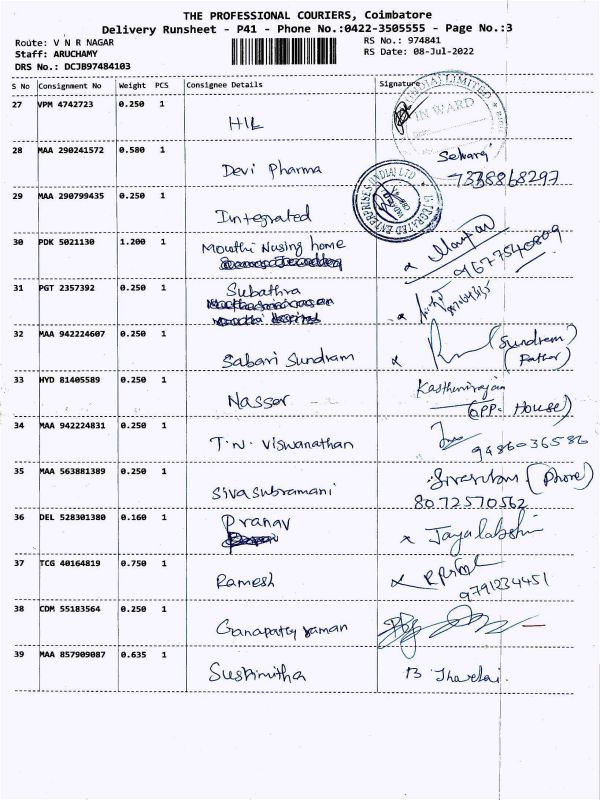 THE PROFESSIONAL COURIERS, Coimbatore
Delivery Runsheet - P41 - Phone No.:0422-3505555 - Page No.:3
Route: V N R NAGAR RS No.: 974841
Staff: ARUCHAMY RS Date: 08-Jul-2022
DRS No.: DCJB97484103
S No Consignment No Weight PCS Consignee Details Signature
27 VPM 4742723 0.250 1 HIL
(INDIA) LIMITED
IN WARD
28 MAA 290241572 0.580 1 Devi Pharma
7338868297
29 MAA 290799435 0.250 1 Integrated
INTEGRATED ENTERPRISES (INDIA) LTD
30 PDK 5021130 1.200 1 Mouthi Nusing home
9677540809
31 PGT 2357392 0.250 1 Subathra
32 MAA 942224607 0.250 1 Sabari Sundram (Sundram)
(Father)
33 HYD 81405589 0.250 1 Nasser
(OPP. House)
34 MAA 942224831 0.250 1 T.N. Viswanathan
9486036586
35 MAA 563881389 0.250 1 Sivasubramani (Phone)
8072570562
36 DEL 528301380 0.160 1 Pranav
x Jayalakshi
37 TCG 40164819 0.750 1 Ramesh
9791234451
38 CDM 55183564 0.250 1 Ganapatty raman
39 MAA 857909087 0.635 1 Sushmitha